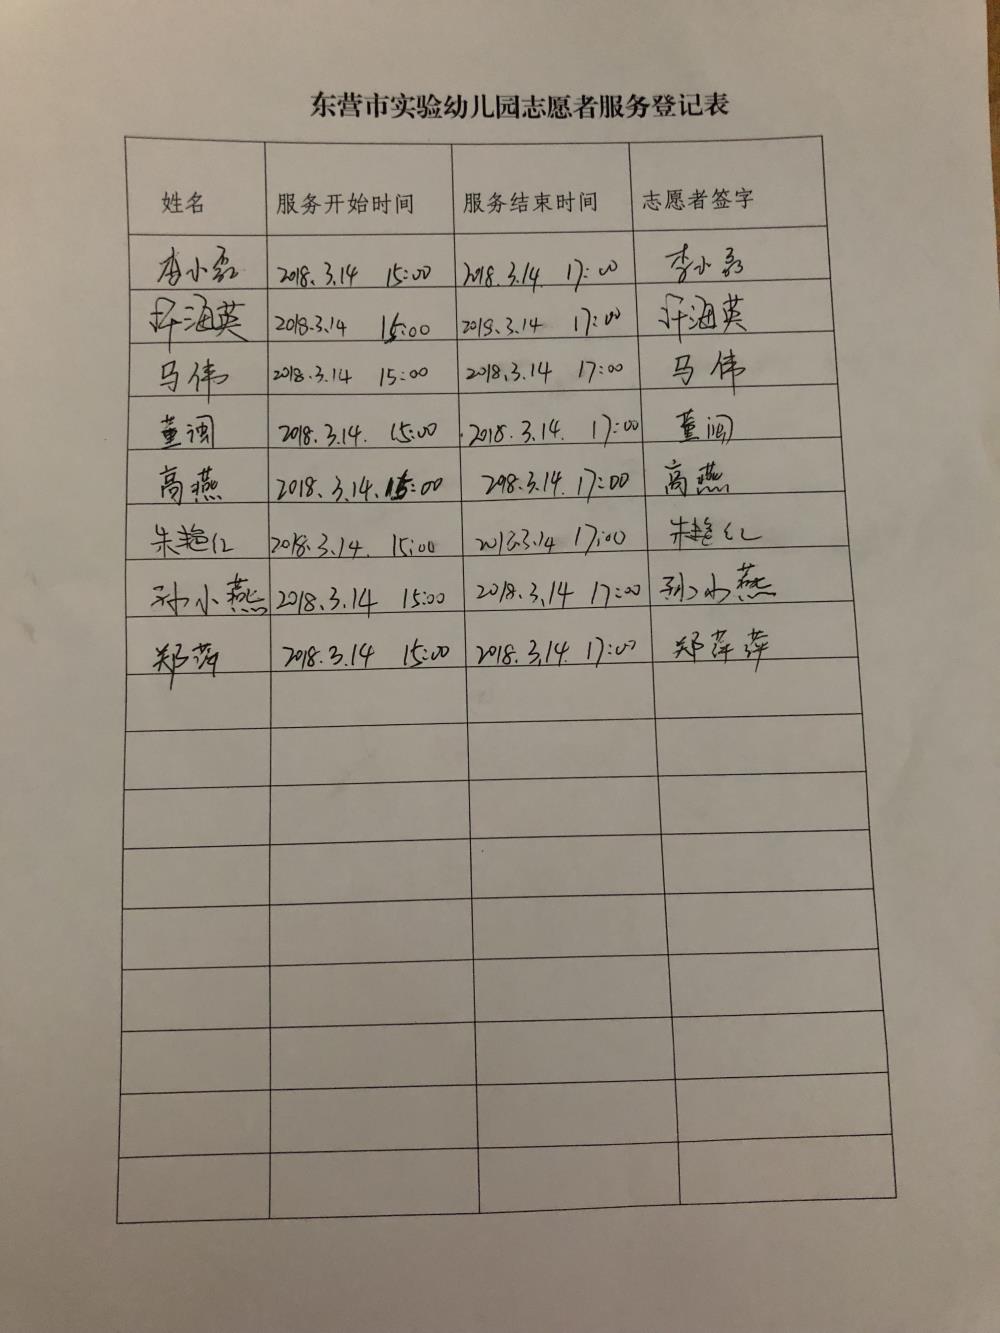 东营市实验幼儿园志愿者服务登记表
姓名 服务开始时间 服务结束时间 志愿者签字
李小磊 2018.3.14 15:00 2018.3.14. 17:00 李小磊
海英 2018.3.14 15:00 2018.3.14 17:00 海英
马伟 2018.3.14 15:00 2018.3.14 17:00 马伟
董闽 2018.3.14. 15:00 2018.3.14. 17:00 董闽
高燕 2018.3.14. 15:00 2018.3.14. 17:00 高燕
朱艳红 2018.3.14. 15:00 2018.3.14 17:00 朱艳红
孙小燕 2018.3.14 15:00 2018.3.14 17:00 孙小燕
郑萍 2018.3.14 15:00 2018.3.14. 17:00 郑萍萍